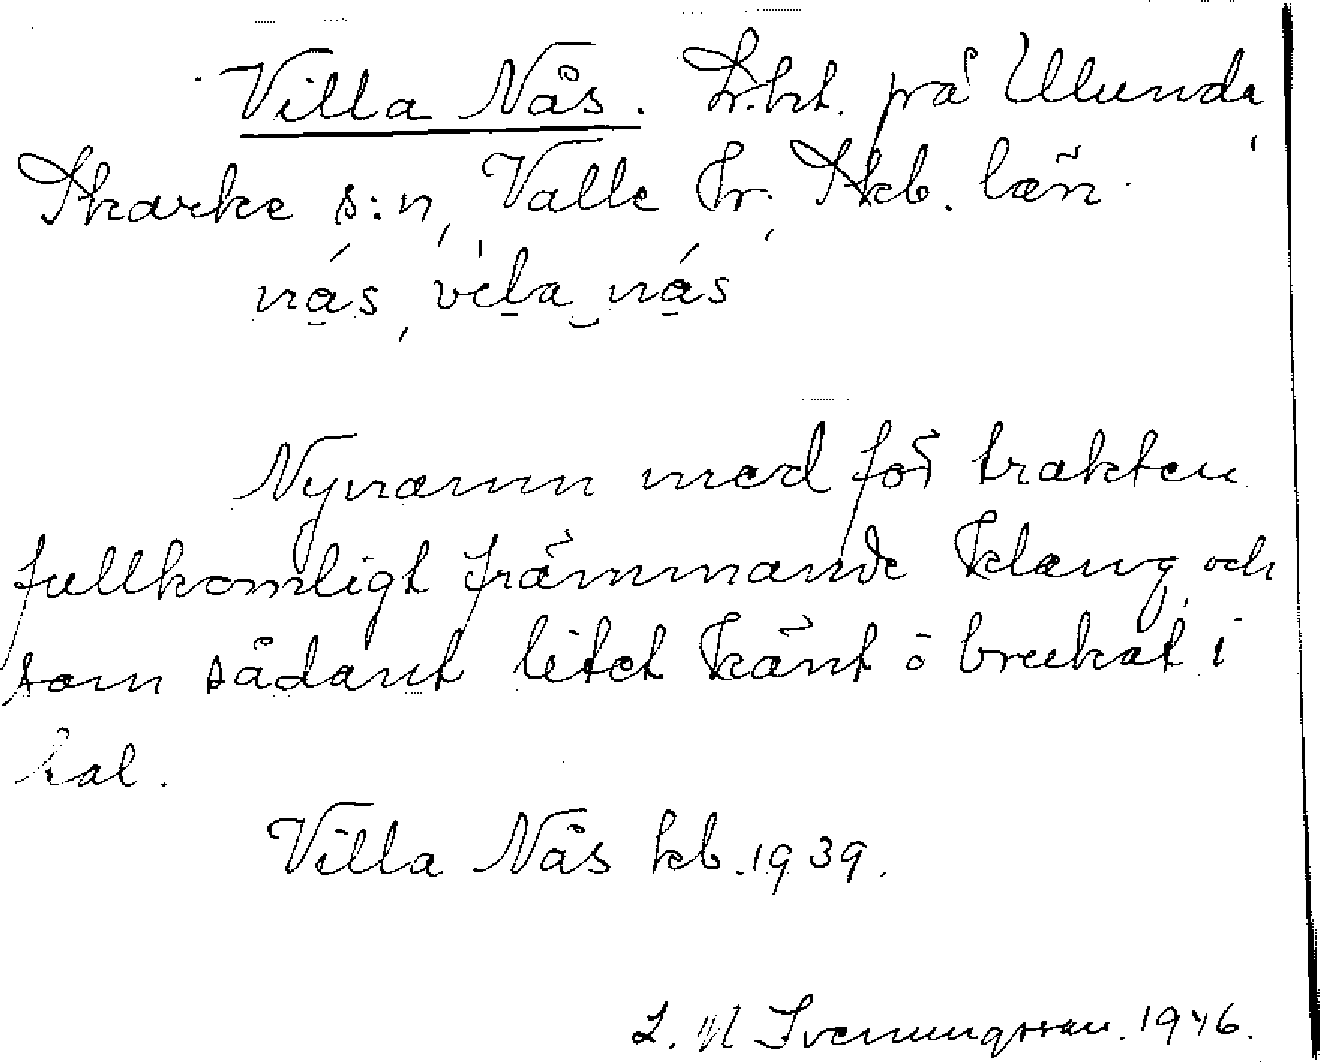 Villa Nås. Lht. på Ulunda,
Skarke s:n, Valle hr, Skb. län.
nás, vila nás
Nynamn med för trakten
fullkomligt främmande klang, och
som sådant litet känt o brukat i
tal.
Villa Nås kb. 1939.
L. N Svenungsson. 1946.